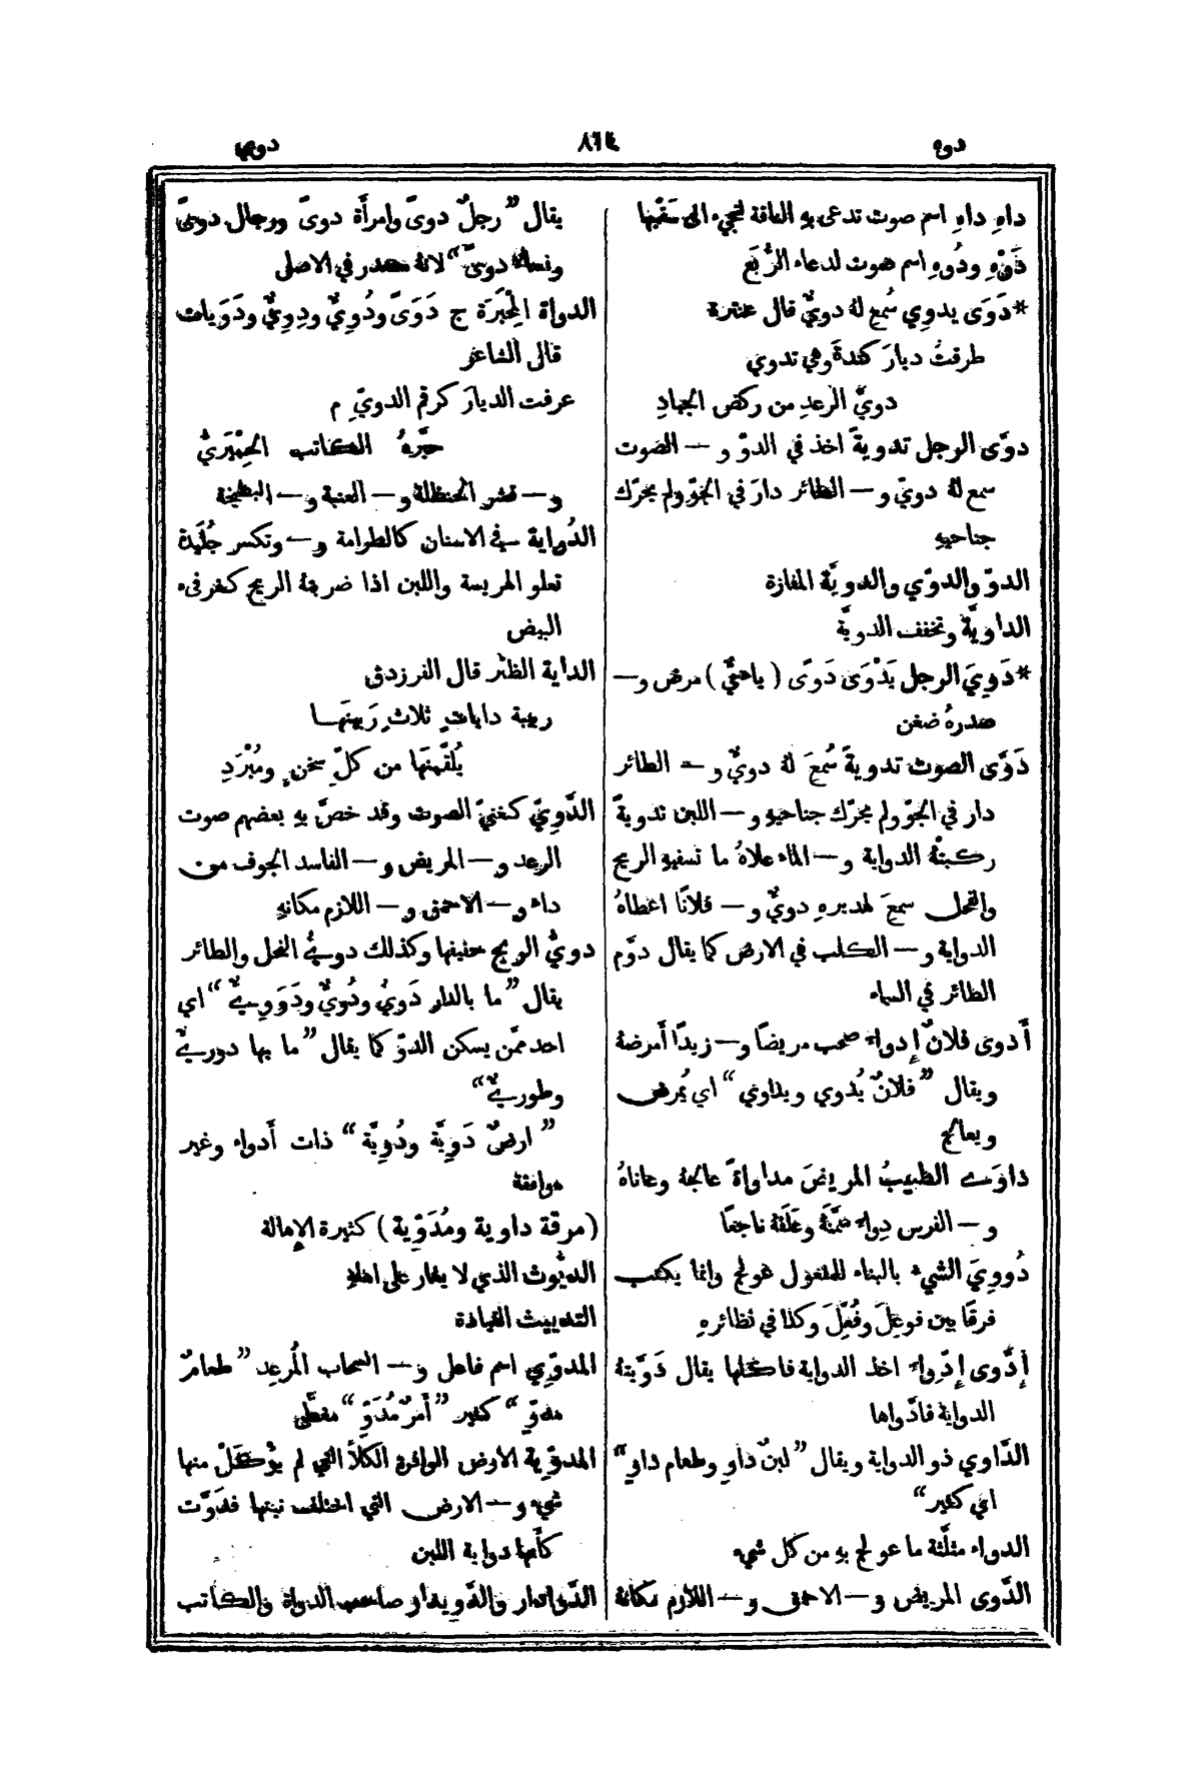 دوه
٨٦٤
دوي
داهِ داهِ اسم صوت تدعى بهِ الناقة لتجيء الى سَقْبها
دَوْهِ ودُوهِ اسم صوت لدعاء الرُّبَع
*دَوَى يدوِي سُمِع لهُ دويٌّ قال عنترة
طرقتُ ديارَ كندةَ وهي تدوي
دويَّ الرعدِ من ركض الجيادِ
دوَّى الرجل تدويةً اخذ في الدوّ و — الصوت
سمع لهُ دويّ و — الطائر دارَ في الجوّ ولم يحرّك
جناحيهِ
الدوّ والدوّي والدويَّة المفازة
الداويَّة وتخفف الدويَّة
*دَوِيَ الرجل يَدْوَى دَوًى (ياءيٌّ) مرض و —
صدرهُ ضغن
دَوَّى الصوت تدويةً سُمِعَ لهُ دويٌّ و — الطائر
دار في الجوّ ولم يحرّك جناحيهِ و — اللبن تدويةً
ركبتهُ الدواية و — الماء علاهُ ما تسفيهِ الريح
والفحل سمعَ لهديرهِ دويٌّ و — فلانًا اعطاهُ
الدواية و — الكلب في الارض كما يقال دوَّم
الطائر في السماء
أَدوى فلانٌ إِدواءً صحب مريضًا و — زيدًا أَمرضهُ
ويقال ”فلانٌ يُدوي ويداوي“ اي يُمرض
ويعالج
داوَى الطبيبُ المريضَ مداواةً عالجهُ وعاناهُ
و — الفرس دِواءً سمَّنهُ وعَلَفهُ ناجعًا
دُووِيَ الشيء بالبناء للمفعول عولج وانما يكتب
فرقًا بين فوعِلَ وفُعِّلَ وكذا في نظائرهِ
إِدَّوى إِدِّواءً اخذ الدواية فاكلها يقال دَوَّيتهُ
الدواية فادَّواها
الدَّاوي ذو الدواية ويقال ”لبنٌ داوٍ وطعام داوٍ“
اي كثير“
الدواء مثلَّثة ما عولج بهِ من كل شيء
الدَّوى المريض و — الاحمق و — اللازم مكانهُ
يقال ”رجلٌ دوىً وامرأَة دوىً ورجال دوىً
ونساءٌ دوىً“ لانهُ مصدر في الاصل
الدواة المِحْبَرَة ج دَوَىً ودُوِيٌّ ودِوِيٌّ ودَوَيات
قال الشاعر
عرفت الديارَ كرقم الدويِّ م
حبَّرهُ الكاتب الحِمْيَريُّ
و — قشر الحنظلة و — العنبة و — البطيخة
الدُواية في الاسنان كالطرامة و — وتكسر جُلَيدة
تعلو الهريسة واللبن اذا ضربهُ الريح كغرقىء
البيض
الداية الظئر قال الفرزدق
ربيبة داياتٍ ثلاثٍ رَبينَهـا
يُلقّمنَها من كلّ سخنٍ ومُبْرَدِ
الدَّوِيّ كغنيّ الصوت وقد خصَّ بهِ بعضهم صوت
الرعد و — المريض و — الفاسد الجوف من
داء و — الاحمق و — اللازم مكانهِ
دويُّ الريح حفيفها وكذلك دويُّ النحل والطائر
يقال ”ما بالدار دَويٌّ ودُويٌّ ودَوَويٌّ“ اي
احد ممّن يسكن الدوّ كما يقال ”ما بها دوريٌّ
وطوريٌّ“
”ارضٌ دَوِيَّة ودُوِيَّة“ ذات أَدواء وغير
موافقة
(مرقة داوية ومُدَوّية) كثيرة الإِهالة
الديُّوث الذي لا يغار على اهلهِ
التدييث القيادة
المدوّي اسم فاعل و — السحاب المُرعِد ”طعامٌ
مدوٍّ“ كثير ”أَمرٌ مُدَوٍّ“ مغطَّى
المدوّية الارض الوافرة الكَلأ التي لم يؤْكَلْ منها
شيء و — الارض التي اختلف نبتها فدَوَّت
كأَنها دواية اللبن
الدَّواتدار والدَّويدار صاحب الدواة والكاتب